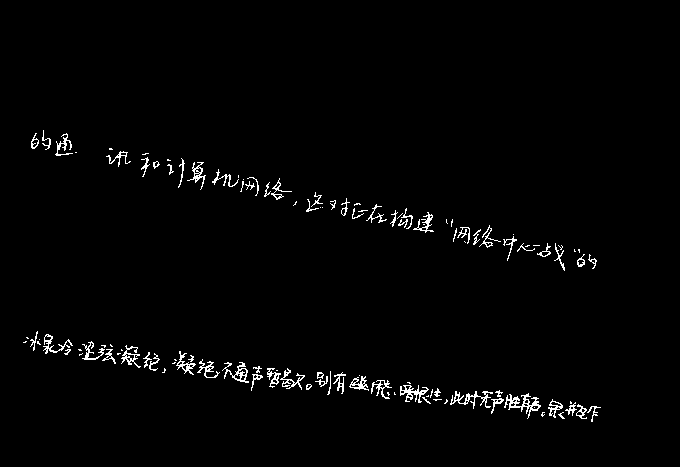 的通 讯和计算机网络，这对正在构建“网络中心战”的
冰泉冷涩弦凝绝，凝绝不通声暂歇。别有幽愁、暗恨生，此时无声胜有声。银瓶乍